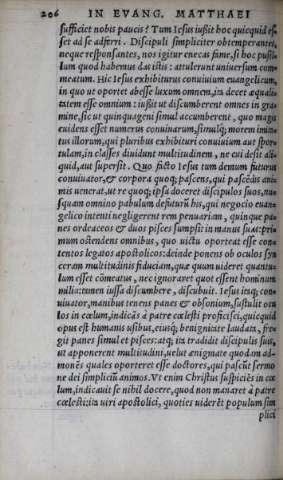 206 IN EVANG. MATTHAEI
sufficiet nobis paucis? Tum Iesus iussit hoc quicquid es-
set ad se adferri. Discipuli simpliciter obtemperantes,
neque responsantes, nos igitur enecas fame, si hoc pusil-
lum quod habemus datistis: attulerunt universum com-
meatum. Hic Iesus exhibiturus convivium evangelicum,
in quo ut oportet abesse luxum omnem, ita decet æquali-
tatem esse omnium: iussit ut discumberent omnes in gra-
mine, sic ut quinquageni simul accumberent, quo magis
evidens esset numerus convivarum, simulq; morem imita-
tus illorum, qui pluribus exhibituri convivium aut spor-
tulam, in classes dividunt multitudinem, ne cui desit ali-
quid, aut supersit. Quo facto Iesus tum demum futurus
convivator, & corpora quoq; pascens, qui pascēdis ani-
mis venerat, ut re quoq; ipsa doceret discipulos suos, nu-
squam omnino pabulum defuturū his, qui negocio euan-
gelico intenti negligerent rem penuariam, quinque pa-
nes ordeaceos & duos pisces sumpsit in manus suas: pri-
mum ostendens omnibus, quo victu oporteat esse con-
tentos legatos apostolicos: deinde ponens ob oculos syn
ceram multitudinis fiduciam, quæ quum videret quantu-
lum esset cōmeatus, nec ignoraret quot essent hominum
milia: tamen iussa discumbere, discubuit. Iesus itaq; con-
vivator, manibus tenens panes & obsonium, sustulit ocu
los in cœlum, indicās à patre cœlesti proficisci, quicquid
opus est humanis usibus, eiusq; benignitate laudata, fre-
git panes simul et pisces: atq; ita tradidit discipulis suis,
ut apponerent multitudini, velut ænigmate quodam ad-
monēs quales oporteret esse doctores, qui pascūt sermo
ne dei simpliciū animos. Ut enim Christus suspiciēs in cœ
lum, indicavit se nihil docere, quod non manaret à patre
cœlesti: ita viri apostolici, quoties viderēt populum sim
plici